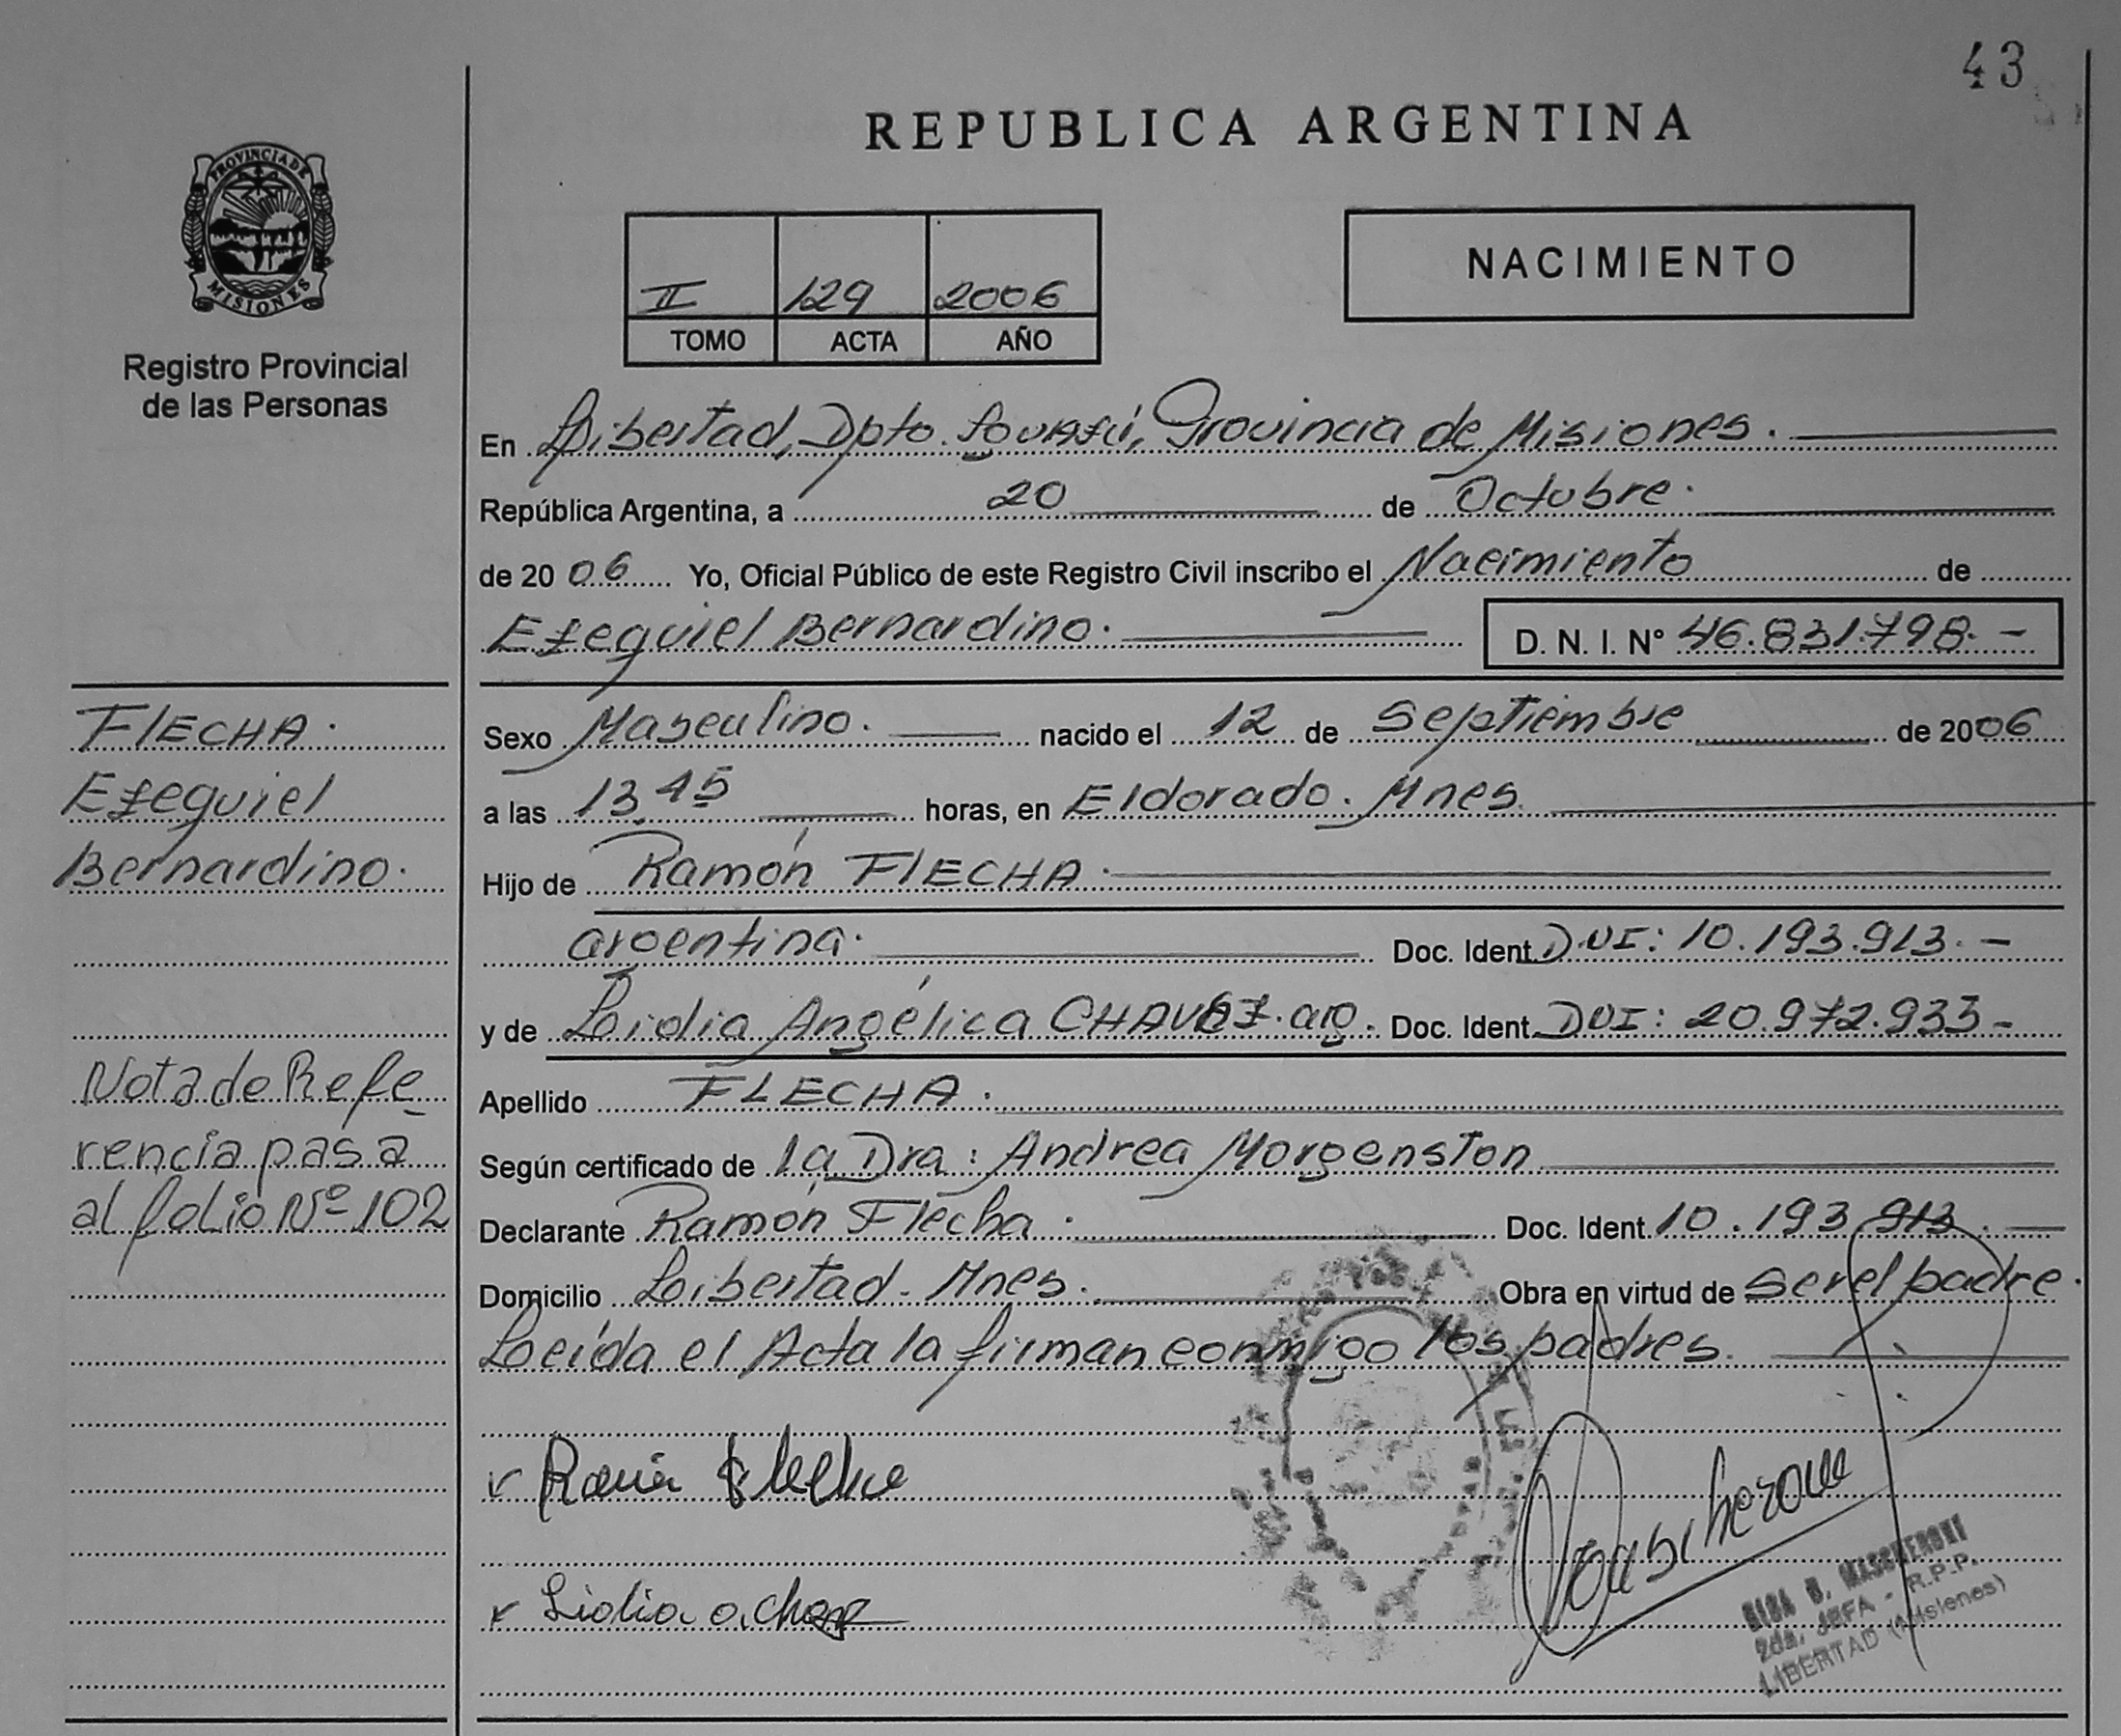 43
REPUBLICA ARGENTINA
PROVINCIA DE
MISIONES
Registro Provincial
de las Personas
II 129 2006
TOMO ACTA AÑO
NACIMIENTO
En Libertad, Dpto. Iguazú, Provincia de Misiones.
República Argentina, a 20 de Octubre.
de 2006 Yo, Oficial Público de este Registro Civil inscribo el Nacimiento de
Ezequiel Bernardino. D. N. I. N° 46.831.798. -
FLECHA.
Ezequiel
Bernardino.
Nota de Refe-
rencia pasa
al folio Nº 102
Sexo Masculino. nacido el 12 de Septiembre de 2006
a las 13.45 horas, en Eldorado. Mnes.
Hijo de Ramón FLECHA.
argentina. Doc. Ident. DNI: 10.193.913. -
y de Lidia Angélica CHAVEZ. arg. Doc. Ident. DNI: 20.972.933 -
Apellido FLECHA.
Según certificado de la Dra: Andrea Morgenston
Declarante Ramón Flecha. Doc. Ident. 10.193.913.
Domicilio Libertad - Mnes. Obra en virtud de ser el padre.
Leída el Acta la firman conmigo los padres.
Flecha
Lidia a. Chavez
2da. JEFA - R.P.P.
LIBERTAD (Misiones)